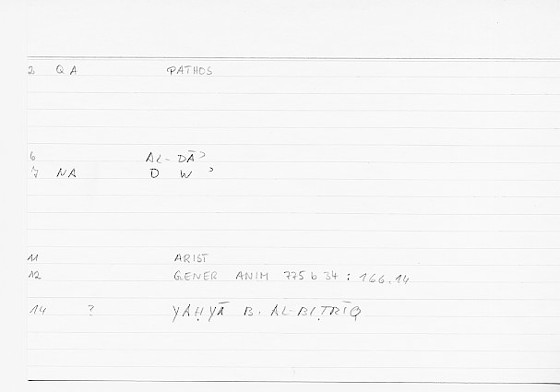 2 QA PATHOS
6 AL-DĀʾ
7 NA D W ʾ
11 ARIST
12 GENER ANIM 775 b 34 : 166.14
14 ? YAḤYĀ B. AL-BIṬRĪQ